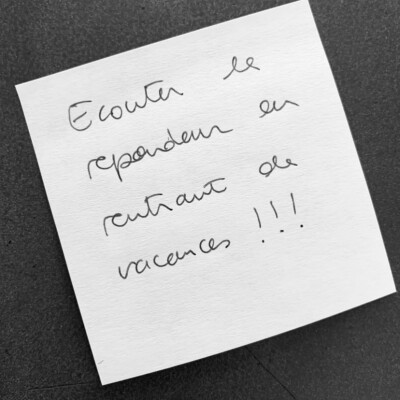 Ecouter le
repondeur en
rentrant de
vacances !!!